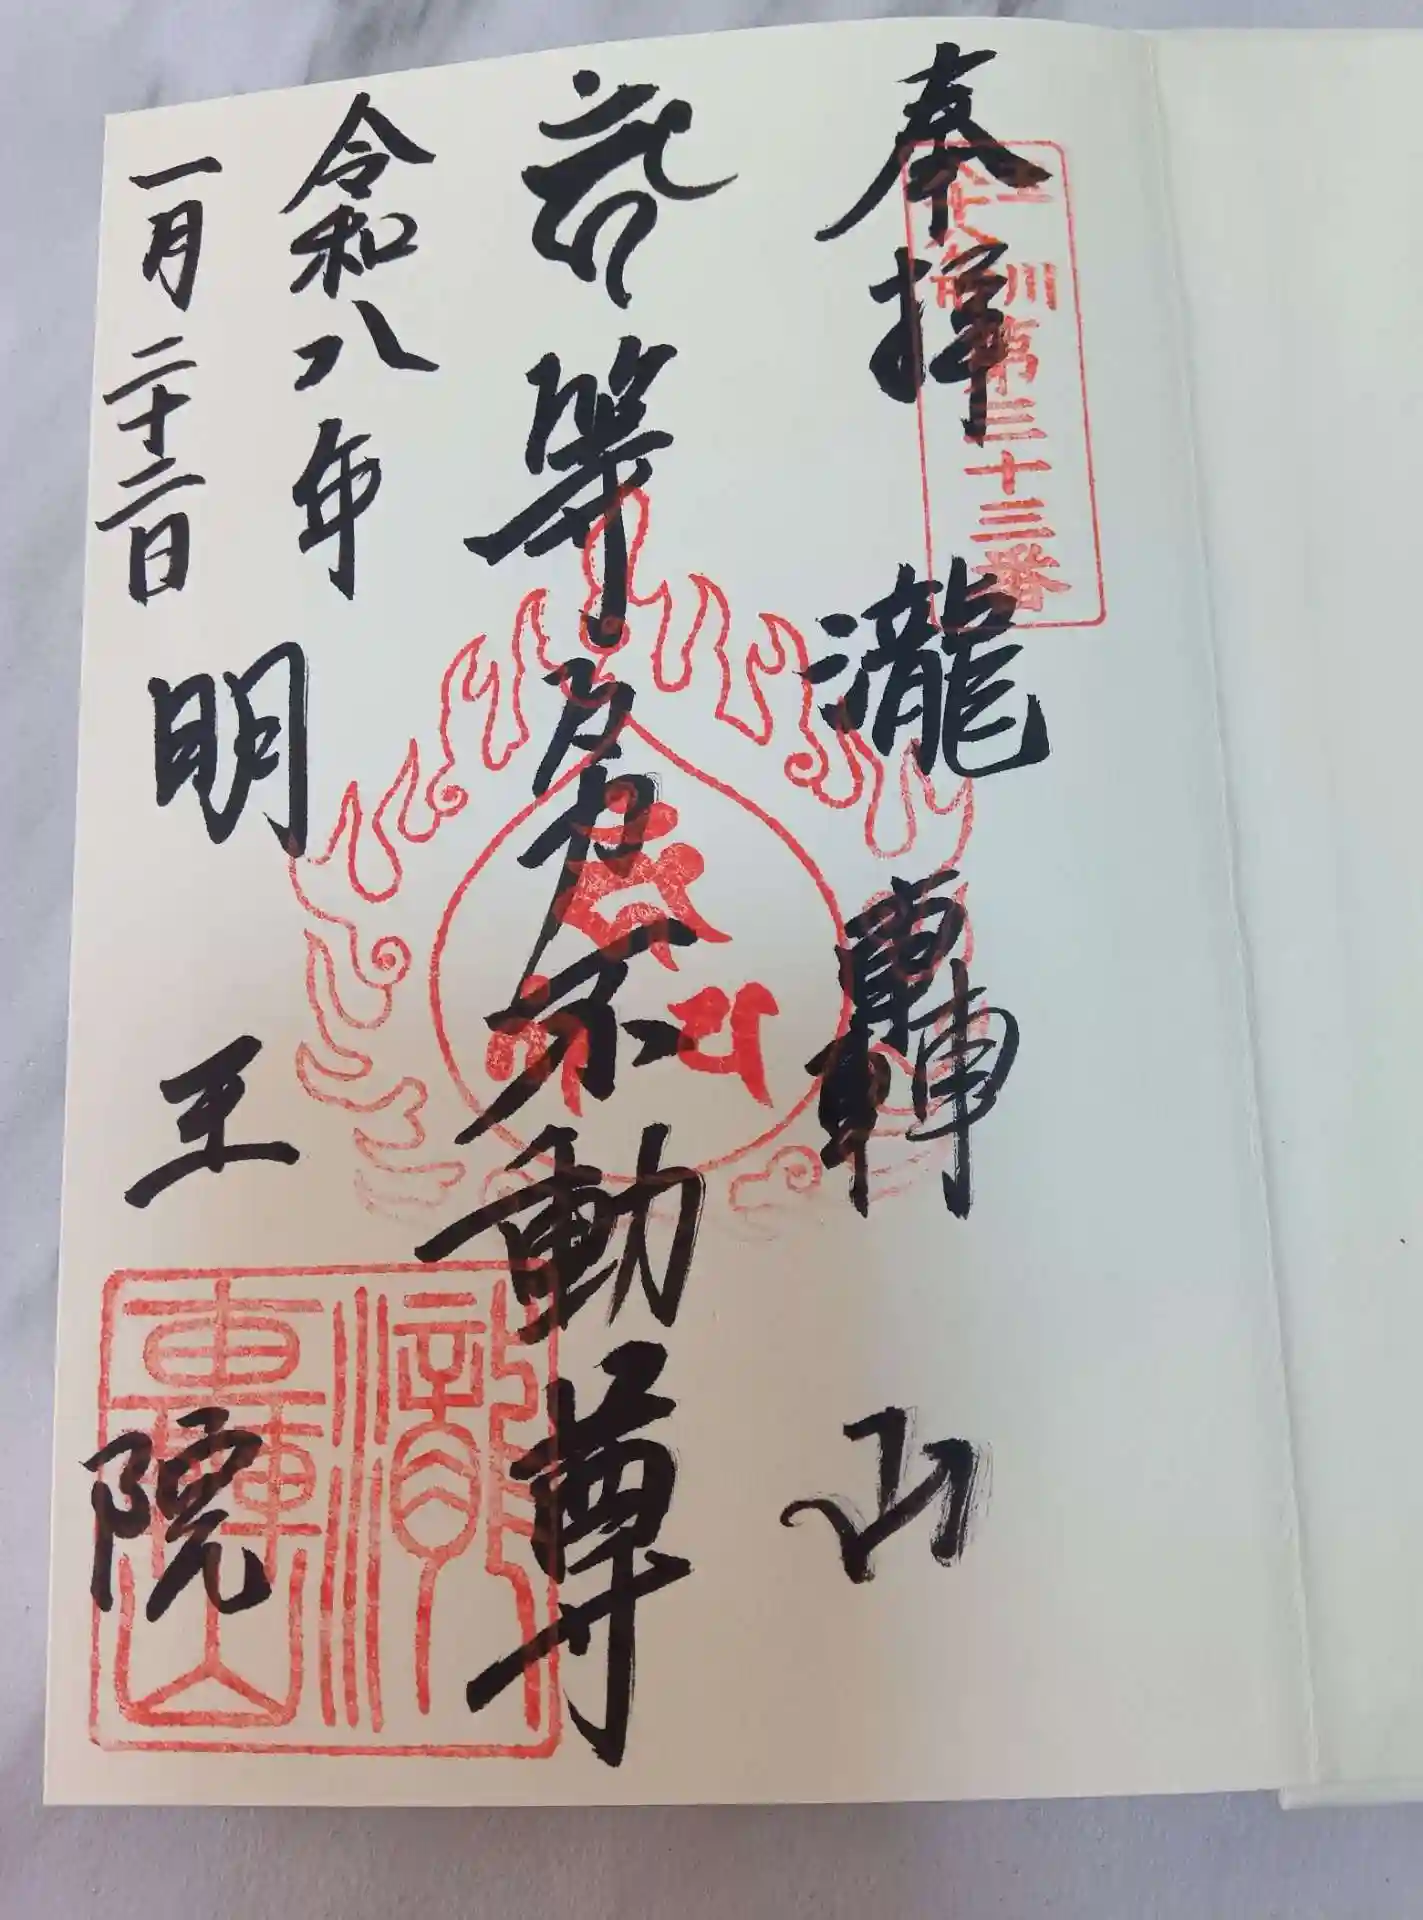 奉拝 瀧轟山
川
第三十三番
等々力不動尊
令和八年
一月二十二日
明王院
瀧轟山